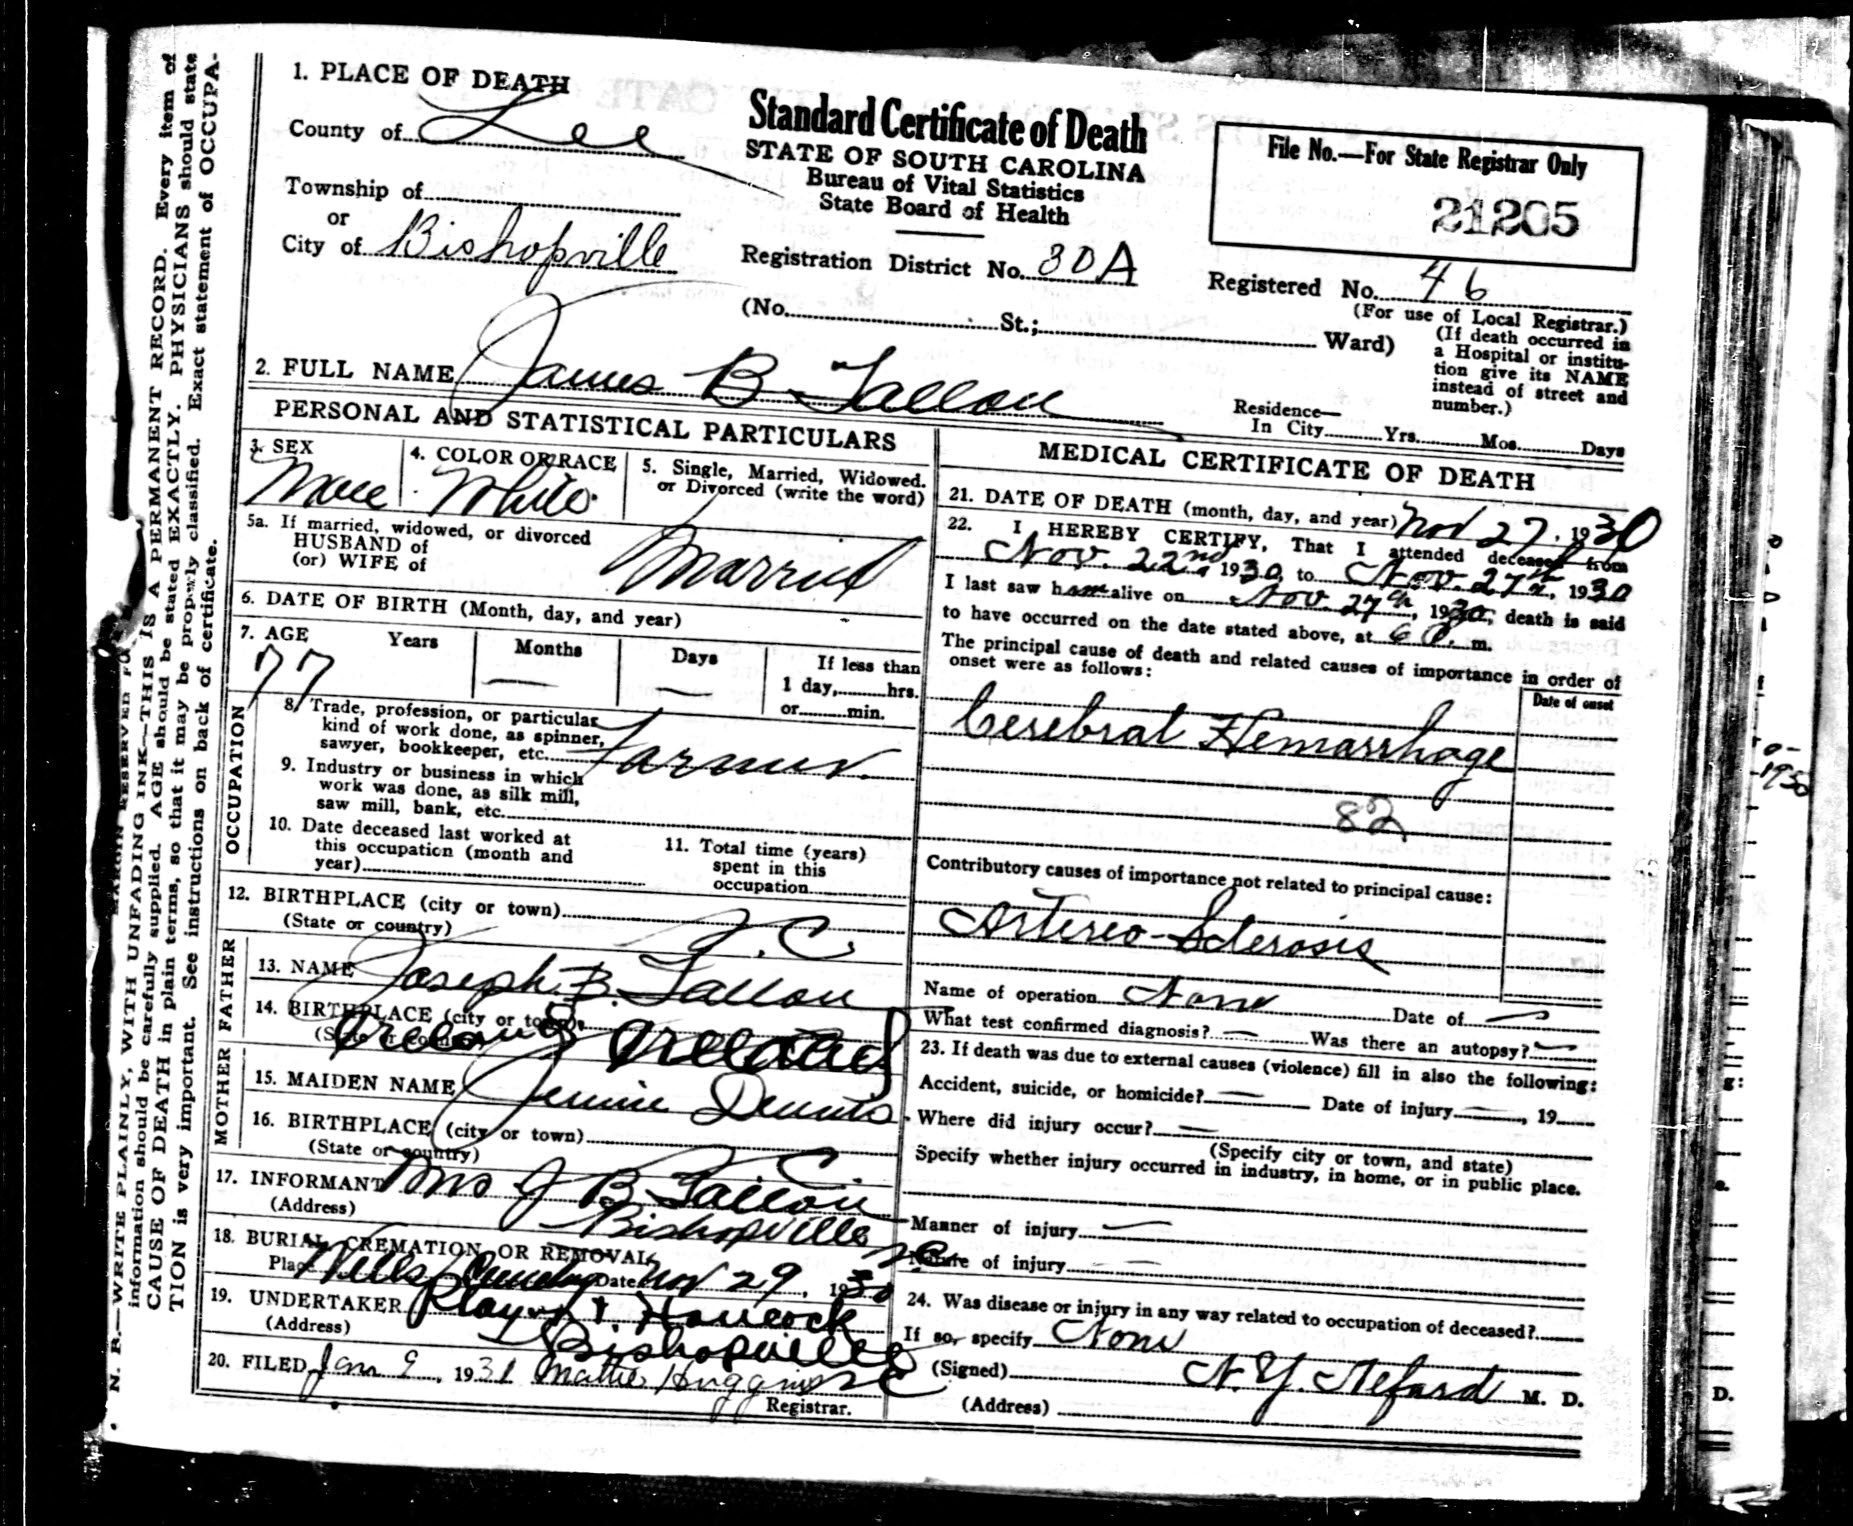 1. PLACE OF DEATH
County of Lee
Township of
or
City of Bishopville
Standard Certificate of Death
STATE OF SOUTH CAROLINA
Bureau of Vital Statistics
State Board of Health
Registration District No. 30A
File No.—For State Registrar Only
21205
Registered No. 46
(For use of Local Registrar.)
(No. St.; Ward)
(If death occurred in
a Hospital or institu-
tion give its NAME
instead of street and
number.)
2. FULL NAME James B Fallon
Residence—
In City Yrs. Mos. Days
PERSONAL AND STATISTICAL PARTICULARS
3. SEX
Male
4. COLOR OR RACE
White
5. Single, Married, Widowed.
or Divorced (write the word)
Married
5a. If married, widowed, or divorced
HUSBAND of
(or) WIFE of
6. DATE OF BIRTH (Month, day, and year)
7. AGE Years Months Days
77 — —
If less than
1 day, hrs.
or min.
OCCUPATION
8. Trade, profession, or particular
kind of work done, as spinner,
sawyer, bookkeeper, etc. Farmer
9. Industry or business in which
work was done, as silk mill,
saw mill, bank, etc.
10. Date deceased last worked at
this occupation (month and
year)
11. Total time (years)
spent in this
occupation
12. BIRTHPLACE (city or town)
(State or country) S.C.
FATHER
13. NAME Joseph B. Fallon
14. BIRTHPLACE (city or town)
(State or country) Ireland
MOTHER
15. MAIDEN NAME Jennie Dennis
16. BIRTHPLACE (city or town)
(State or country) S C
17. INFORMANT Mrs J B Fallon
(Address) Bishopville S C
18. BURIAL, CREMATION, OR REMOVAL,
Place Wells Date Nov 29, 1930
19. UNDERTAKER & Hancock
(Address) Bishopville S C
20. FILED Jan 9, 1931 Mattie Huggins
Registrar.
MEDICAL CERTIFICATE OF DEATH
21. DATE OF DEATH (month, day, and year) Nov 27, 1930
22. I HEREBY CERTIFY, That I attended deceased from
Nov. 22nd, 1930, to Nov. 27th, 1930
I last saw him alive on Nov. 27th, 1930, death is said
to have occurred on the date stated above, at 6 m.
The principal cause of death and related causes of importance in order of
onset were as follows:
Date of onset
Cerebral Hemarrhage
82
Contributory causes of importance not related to principal cause:
Artereo-Sclerosis
Name of operation None Date of —
What test confirmed diagnosis? — Was there an autopsy? —
23. If death was due to external causes (violence) fill in also the following:
Accident, suicide, or homicide? — Date of injury —, 19
Where did injury occur? —
(Specify city or town, and state)
Specify whether injury occurred in industry, in home, or in public place.
Manner of injury —
Nature of injury —
24. Was disease or injury in any way related to occupation of deceased?
If so, specify None
(Signed) M. D.
(Address)
N. B.—WRITE PLAINLY, WITH UNFADING INK—THIS IS A PERMANENT RECORD. Every item of
information should be carefully supplied. AGE should be stated EXACTLY. PHYSICIANS should state
CAUSE OF DEATH in plain terms, so that it may be properly classified. Exact statement of OCCUPA-
TION is very important. See instructions on back of certificate.